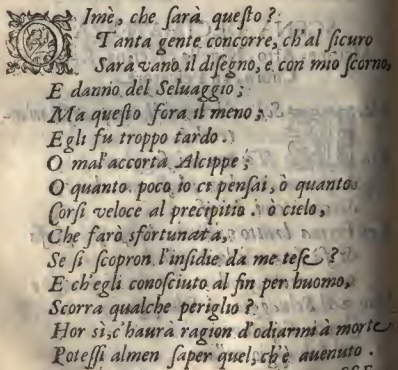 Oimè, che ſarà queſto?
Tanta gente concorre, ch'al ſicuro
Sarà vano il diſegno, e con mio ſcorno,
E danno del Seluaggio;
Ma queſto fora il meno;
Egli fu troppo tardo.
O mal'accorta Alcippe;
O quanto poco io ci penſai, ò quanto
Corſi veloce al precipitio. ò cielo,
Che farò sfortunata,
Se ſi ſcopron l'inſidie da me teſe?
E ch'egli conoſciuto al fin per huomo,
Scorra qualche periglio?
Hor sì, c'haurà ragion d'odiarmi à morte
Poteſſi almen ſaper quel, ch'è auenuto.